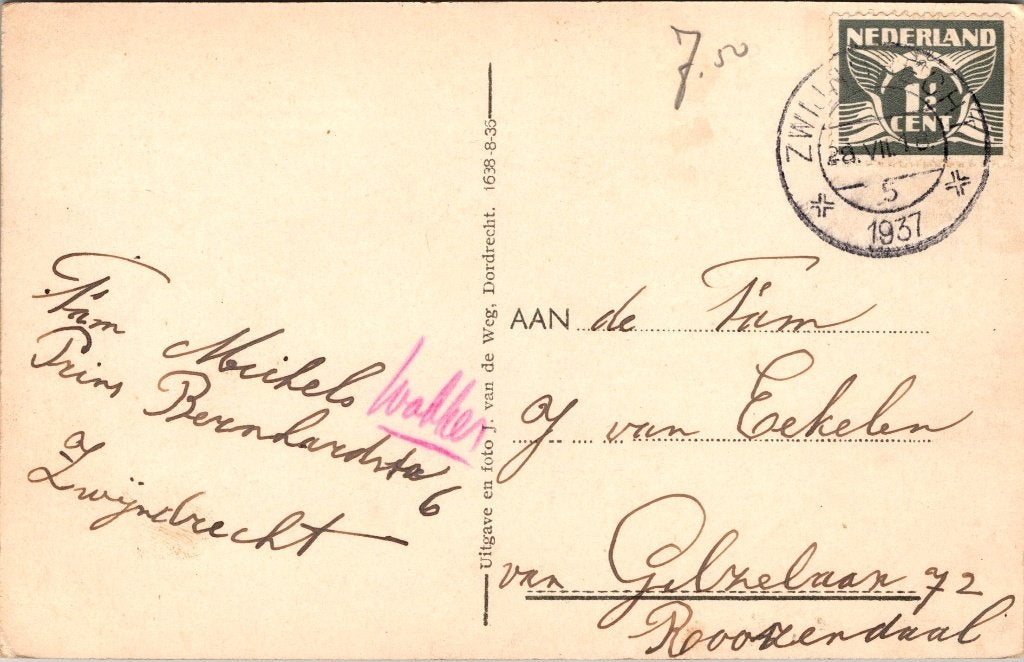 7.50
NEDERLAND
1½
CENT
ZWIJNDRECHT
1937
5
Fam
Michels
Prins Bernhardstr 6
Zwijndrecht
Wakker
Uitgave en foto J. van de Weg, Dordrecht. 1638-8-36
AAN de Fam
J van Eekelen
van Gilzelaan 72
Roozendaal